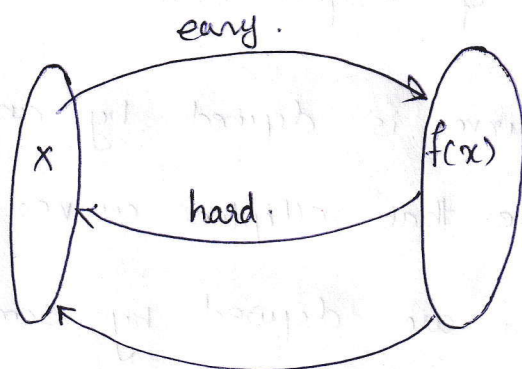 easy.
x
f(x)
hard.